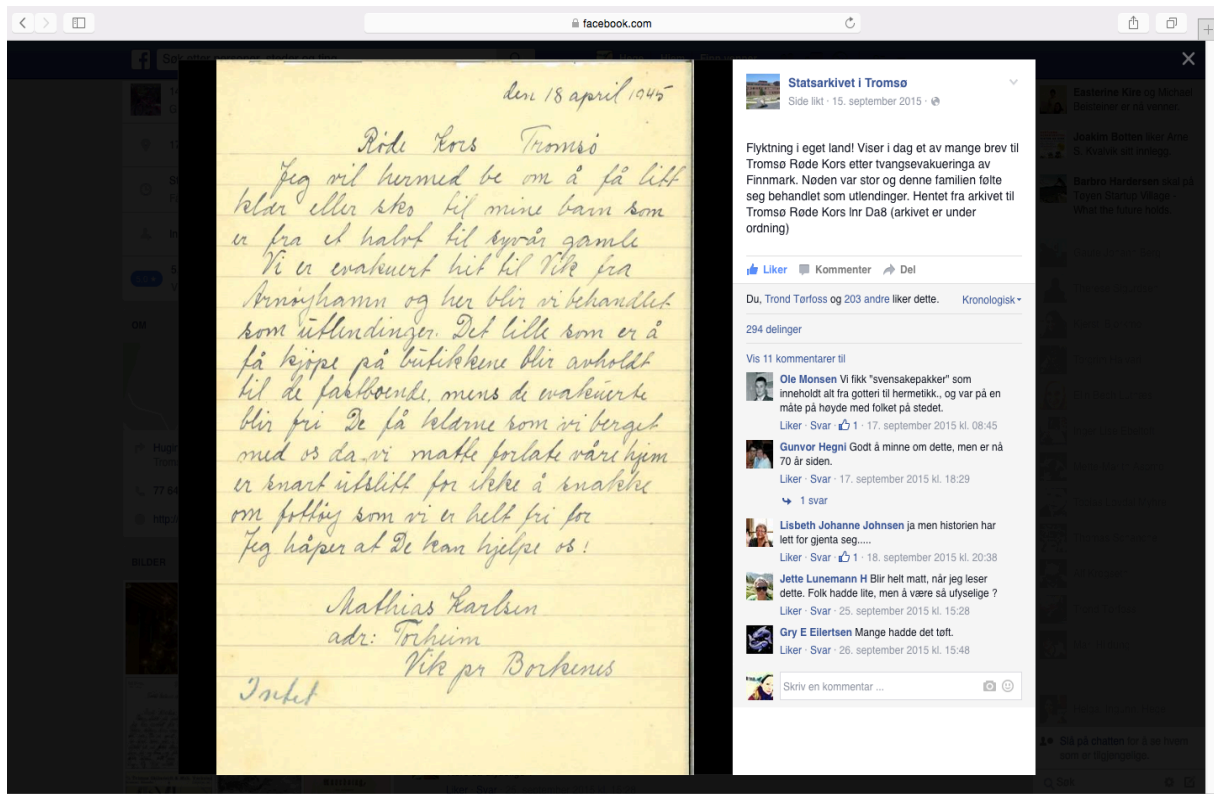 facebook.com
den 18 april 1945
Røde Kors Tromsø
Jeg vil hermed be om å få litt
klær eller sko til mine barn som
er fra et halvt til syvår gamle
Vi er evakuert hit til Vik fra
Arnøyhamn og her blir vi behandlet
som utlendinger. Det lille som er å
få kjøpe på butikkene blir avholdt
til de fastboende, mens de evakuerte
blir fri De få klærne som vi berget
med os da vi måtte forlate våre hjem
er snart utslitt for ikke å snakke
om fottøy som vi er helt fri for
Jeg håper at De kan hjelpe os!
Mathias Karlsen
adr: Torheim
Vik pr Borkenes
Statsarkivet i Tromsø
Side likt · 15. september 2015 ·
Flyktning i eget land! Viser i dag et av mange brev til
Tromsø Røde Kors etter tvangsevakueringa av
Finnmark. Nøden var stor og denne familien følte
seg behandlet som utlendinger. Hentet fra arkivet til
Tromsø Røde Kors lnr Da8 (arkivet er under
ordning)
Liker Kommenter Del
Du, Trond Tørfoss og 203 andre liker dette. Kronologisk
294 delinger
Vis 11 kommentarer til
Ole Monsen Vi fikk "svensakepakker" som
inneholdt alt fra gotteri til hermetikk., og var på en
måte på høyde med folket på stedet.
Liker · Svar · 1 · 17. september 2015 kl. 08:45
Gunvor Hegni Godt å minne om dette, men er nå
70 år siden.
Liker · Svar · 17. september 2015 kl. 18:29
1 svar
Lisbeth Johanne Johnsen ja men historien har
lett for gjenta seg.....
Liker · Svar · 1 · 18. september 2015 kl. 20:38
Jette Lunemann H Blir helt matt, når jeg leser
dette. Folk hadde lite, men å være så ufyselige ?
Liker · Svar · 25. september 2015 kl. 15:28
Gry E Eilertsen Mange hadde det tøft.
Liker · Svar · 26. september 2015 kl. 15:48
Skriv en kommentar ...
Easterine Kire og Michael
Besteiner er nå venner.
Joakim Botten liker Arne
Barbro Hardersen skal på
Tøyen Startup Village -
What the future holds.
Slå på chatten for å se hvem
som er tilgjengelige.
Søk
OM
BILDER